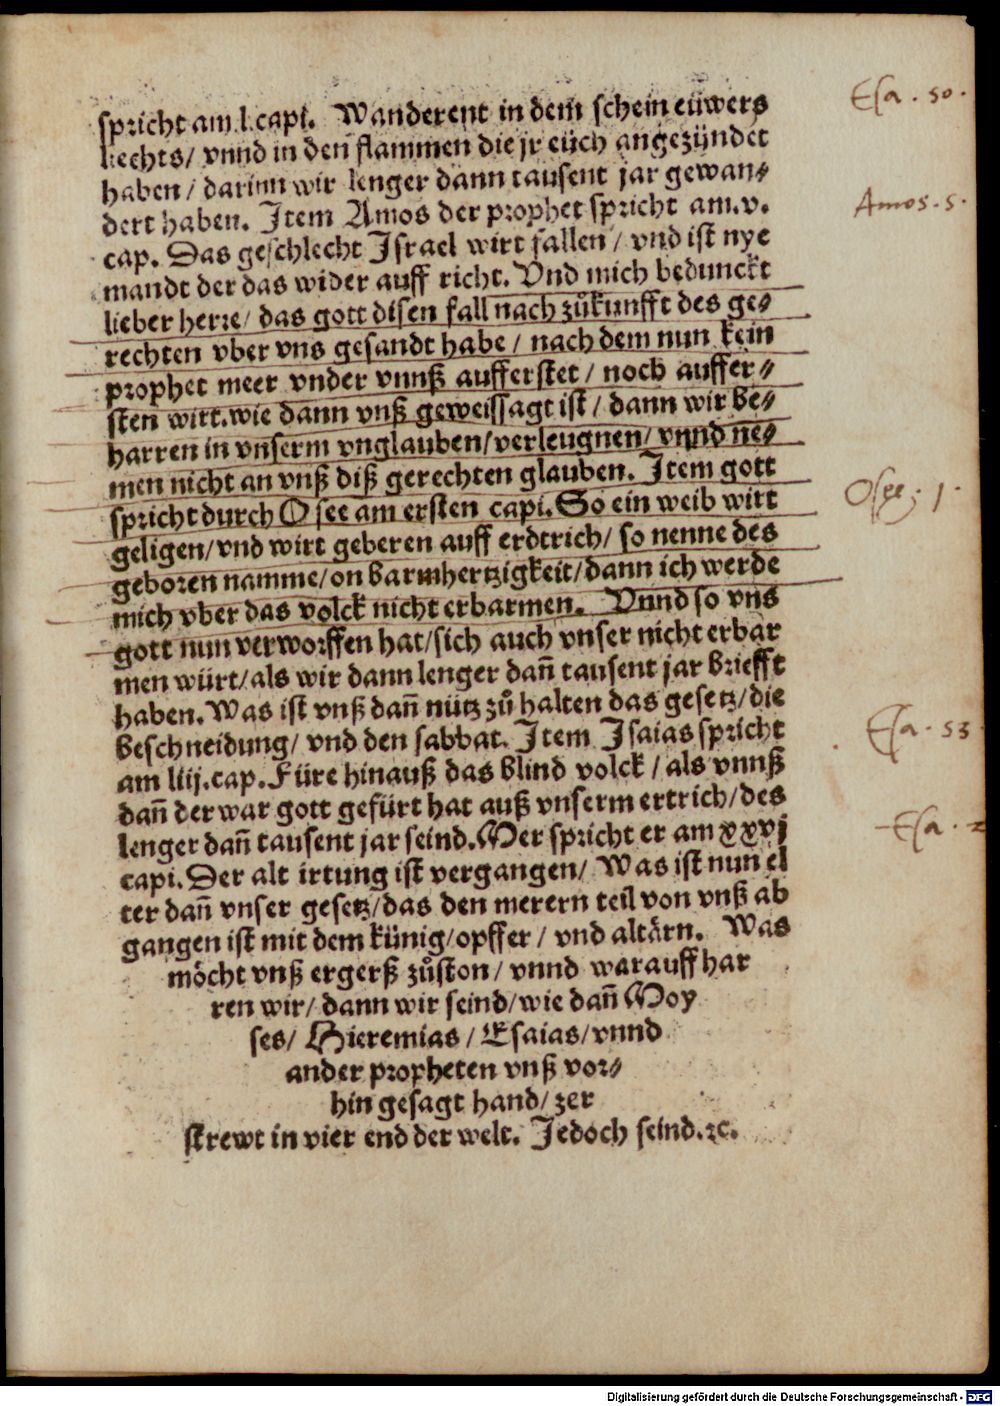 spricht am .l. capi. Wanderent in dem schein eüwers
liechts/ vnnd in den flammen die jr eüch angezündet
haben/ darinn wir lenger dann tausent jar gewan⸗
dert haben. Item Amos der prophet spricht am .v.
cap. Das geschlecht Israel wirt fallen/ vnd ist nye
mandt der das wider auff richt. Vnd mich bedunckt
lieber herre/ das gott disen fall nach zůkunfft des ge⸗
rechten vber vns gesandt habe/ nach dem nun kein
prophet meer vnder vnnß aufferstet/ noch auffer⸗
sten wirt. wie dann vnß geweissagt ist/ dann wir be⸗
harren in vnserm vnglauben/ verleugnen/ vnnd ne⸗
men nicht an vnß diß gerechten glauben. Item gott
spricht durch Osee am ersten capi. So ein weib wirt
geligen/ vnd wirt geberen auff erdtrich/ so nenne des
geboren namme/ on barmhertzigkeit/ dann ich werde
mich vber das volck nicht erbarmen. Vnnd so vns
gott nun verworffen hat/ sich auch vnser nicht erbar
men würt/ als wir dann lenger dañ tausent jar briefft
haben. Was ist vnß dañ nütz zů halten das gesetz/ die
beschneidung/ vnd den sabbat. Item Isaias spricht
am liij. cap. Füre hinauß das blind volck/ als vnnß
dañ der war gott gefürt hat auß vnserm ertrich/ des
lenger dañ tausent jar seind. Mer spricht er am xxvj
capi. Der alt irtung ist vergangen/ Was ist nun el
ter dañ vnser gesetz/ das den merern teil von vnß ab
gangen ist mit dem künig/ opffer/ vnd altärn. Was
möcht vnß ergerß zůston/ vnnd warauff har
ren wir/ dann wir seind/ wie dañ Moy
ses/ Hieremias/ Esaias/ vnnd
ander propheten vnß vor⸗
hin gesagt hand/ zer
strewt in vier end der welt. Jedoch seind. ꝛc.
Esa. 50.
Amos. 5.
Osee. 1.
Esa. 53
Esa. 2
Digitalisierung gefördert durch die Deutsche Forschungsgemeinschaft - DFG